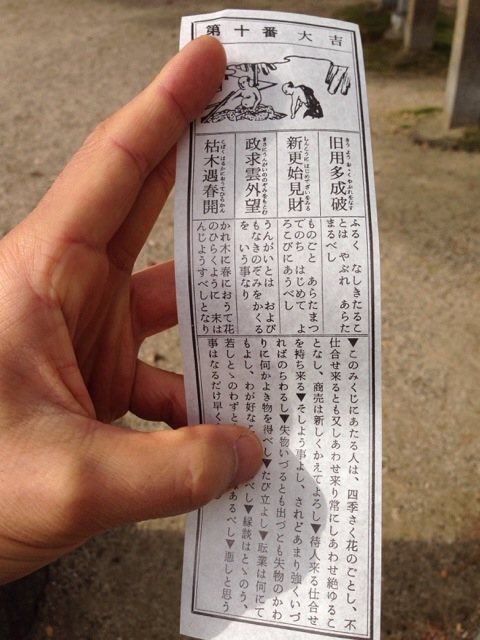 第十番 大吉
旧用多成破
新更始見財
政求雲外望
枯木遇春開
ふるく なしきたるこ
とは やぶれ あらた
まるべし
ものごと あらたまつ
てのち はじめて よ
ろこびにあうべし
うんがいとは および
もなきのぞみをかくる
を いう事なり
かれ木に春におうて花
のひらくように 末は
んじようすべしとなり
▼このみくじにあたる人は、四季さく花のごとし、不
仕合せ来るとも又しあわせ来り常にしあわせ絶ゆるこ
となし、商売は新しくかえてよろし▼待人来る仕合せ
を持ち来る▼そしよう事よし、されどあまり強くいづ
ればのちわるし▼失物いづるとも出づとも失物のかわ
りに何かよき物を得べし▼たび立よし▼転業は何にて
もよし、わが好な べし▼縁談はとゝのう、
若しとゝのわずと あるべし▼悪しと思う
事はなるだけ早く